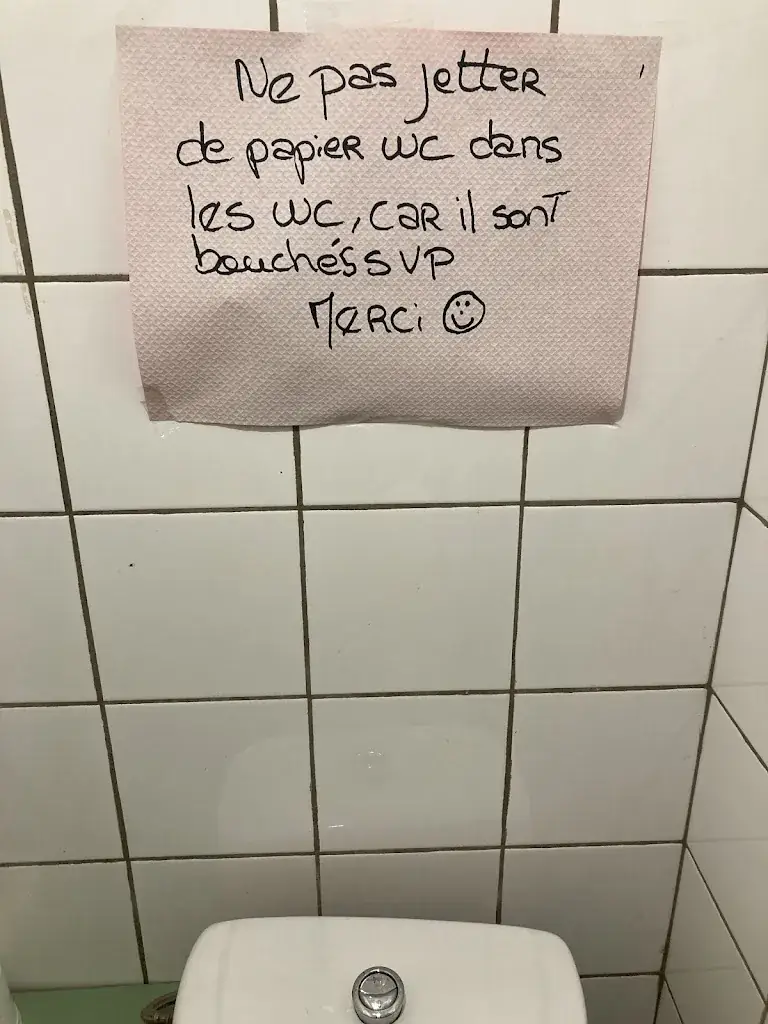 Ne pas jetter
de papier WC dans
les WC, car il sont
bouchés SVP
Merci ☺